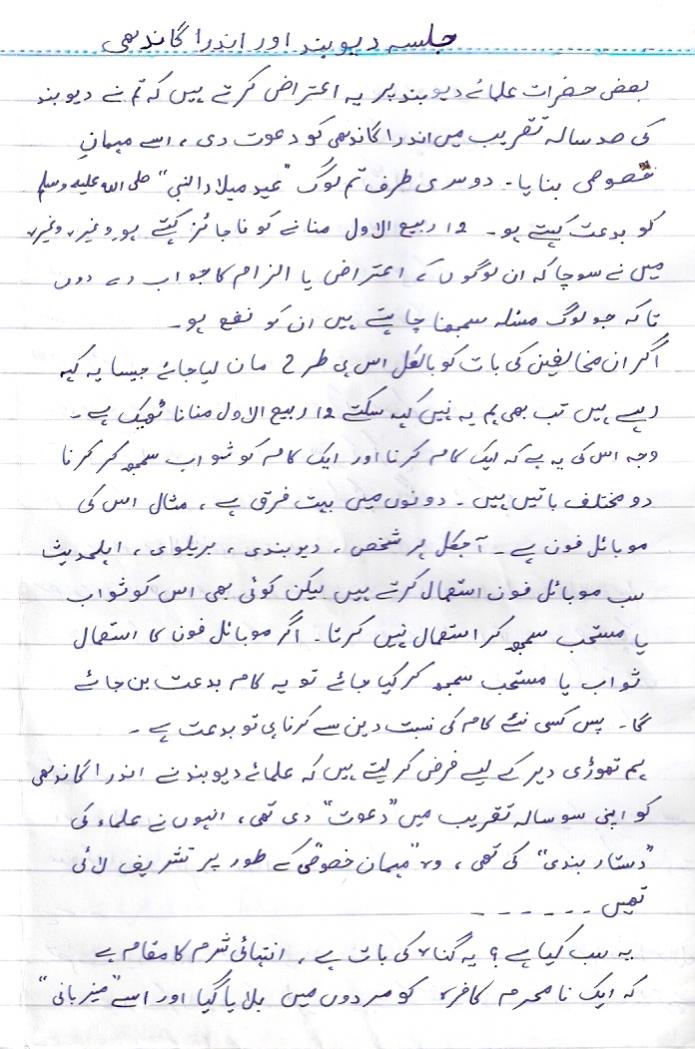 جلسہ دیوبند اور اندرا گاندھی
بعض حضرات علمائے دیوبند پر یہ اعتراض کرتے ہیں کہ تم نے دیوبند
کی صد سالہ تقریب میں اندرا گاندھی کو دعوت دی، اسے مہمانِ
خصوصی بنایا۔ دوسری طرف تم لوگ "عید میلادالنبی" صلی اللہ علیہ وسلم
کو بدعت کہتے ہو۔ 12 ربیع الاول منانے کو ناجائز کہتے ہو وغیرہ وغیرہ
میں نے سوچا کہ ان لوگوں کے اعتراض یا الزام کا جواب دے دوں
تاکہ جو لوگ مسئلہ سمجھنا چاہتے ہیں ان کو نفع ہو۔
اگر ان مخالفین کی بات کو بالکل اس ہی طرح مان لیا جائے جیسا یہ کہہ
رہے ہیں تب بھی ہم یہ نہیں کہہ سکتے 12 ربیع الاول منانا ٹھیک ہے۔
وجہ اس کی یہ ہے کہ ایک کام کرنا اور ایک کام کو ثواب سمجھ کر کرنا
دو مختلف باتیں ہیں۔ دونوں میں بہت فرق ہے، مثال اس کی
موبائل فون ہے۔ آجکل ہر شخص، دیوبندی، بریلوی، اہلحدیث
سب موبائل فون استعمال کرتے ہیں لیکن کوئی بھی اس کو ثواب
یا مستحب سمجھ کر استعمال نہیں کرتا۔ اگر موبائل فون کا استعمال
ثواب یا مستحب سمجھ کر کیا جائے تو یہ کام بدعت بن جائے
گا۔ پس کسی نئے کام کی نسبت دین سے کرنا ہی تو بدعت ہے۔
ہم تھوڑی دیر کے لیے فرض کر لیتے ہیں کہ علمائے دیوبند نے اندرا گاندھی
کو اپنی سو سالہ تقریب میں "دعوت" دی تھی، انہوں نے علماء کی
"دستار بندی" کی تھی، وہ "مہمان خصوصی" کے طور پر تشریف لائی
تھیں ------
یہ سب کیا ہے؟ یہ گناہ کی بات ہے، انتہائی شرم کا مقام ہے
کہ ایک نامحرم کافرہ کو مردوں میں بلایا گیا اور اسے "میزبانی"